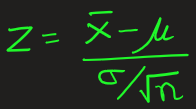 z = (x̄ - μ) / (σ/√n)